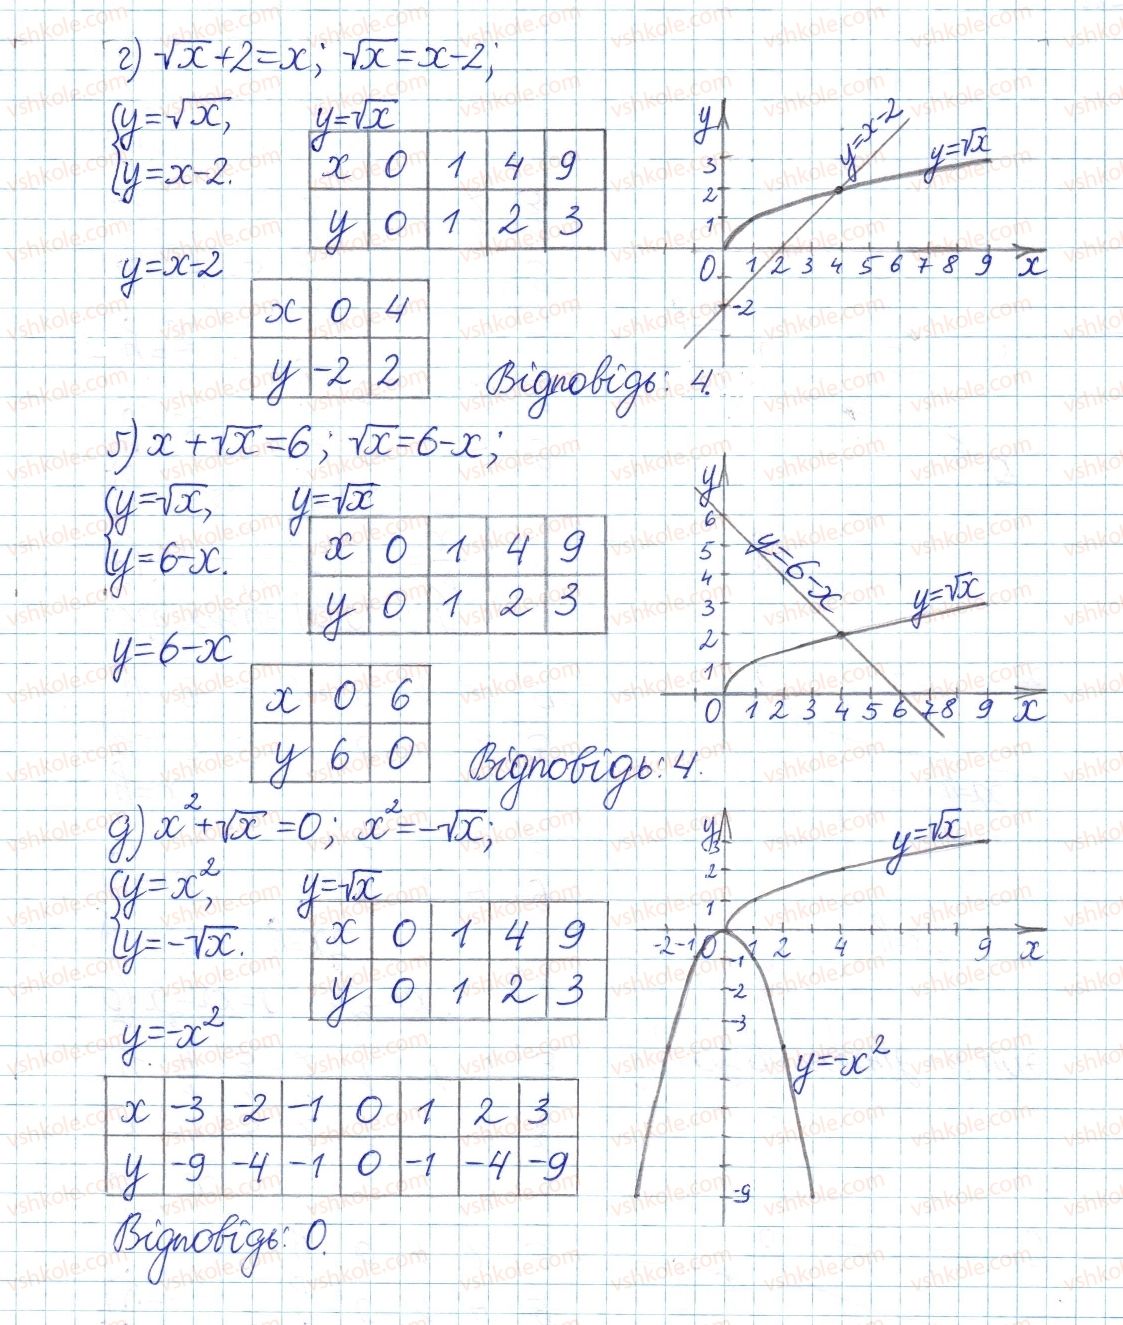 г) √x + 2 = x; √x = x - 2;
{y = √x,
y = x - 2.
y = √x
x 0 1 4 9
y 0 1 2 3
y = x - 2
x 0 4
y -2 2
y
3
2
1
0 1 2 3 4 5 6 7 8 9 x
-2
y = x - 2
y = √x
Відповідь: 4.
б) x + √x = 6; √x = 6 - x;
{y = √x,
y = 6 - x.
y = √x
x 0 1 4 9
y 0 1 2 3
y = 6 - x
x 0 6
y 6 0
y
6
5
4
3
2
1
0 1 2 3 4 5 6 7 8 9 x
y = 6 - x
y = √x
Відповідь: 4.
д) x² + √x = 0; x² = -√x;
{y = x²,
y = -√x.
y = √x
x 0 1 4 9
y 0 1 2 3
y = -x²
x -3 -2 -1 0 1 2 3
y -9 -4 -1 0 -1 -4 -9
y
3
2
1
-2 -1 0 1 2 4 9 x
-1
-2
-3
-9
y = √x
y = -x²
Відповідь: 0.
vshkole.com